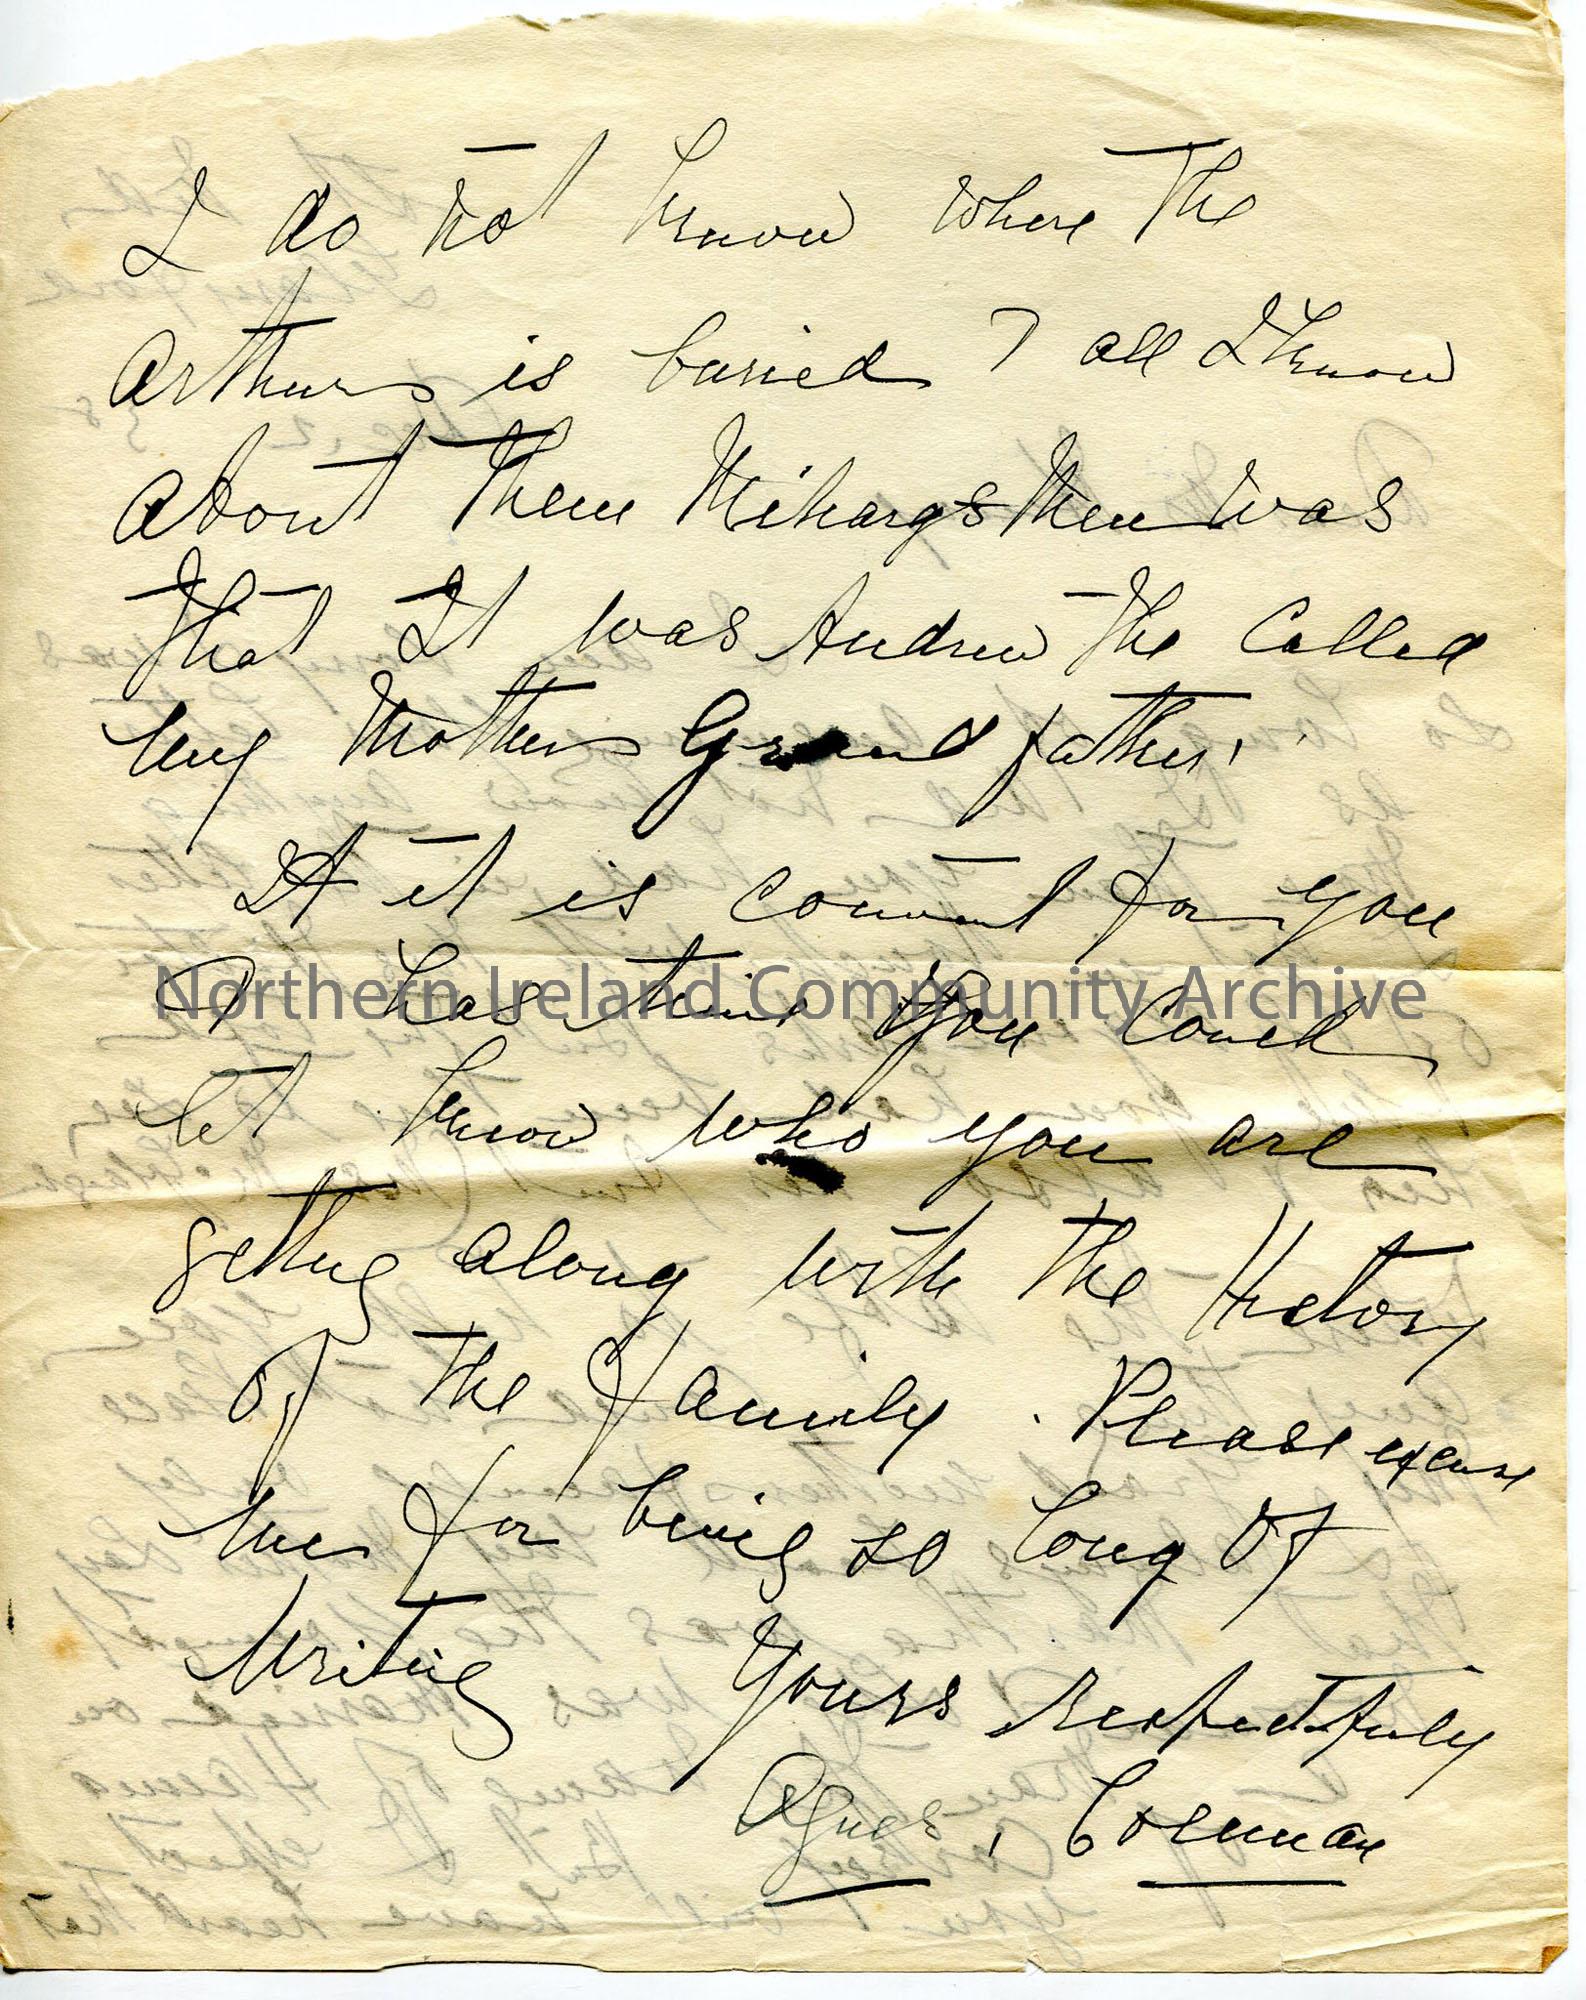 I do not know where the
Arthurs is buried ? all I know
about them Mihargs then was
that It was Andrew the Called
my Mothers Grand father.
If it is convent for you
& has time You could
let know who you are
getting along with the History
of the family. Please excuse
me for being so long of
Writing Yours respectfuly
Agnes, Coleman
Northern Ireland Community Archive